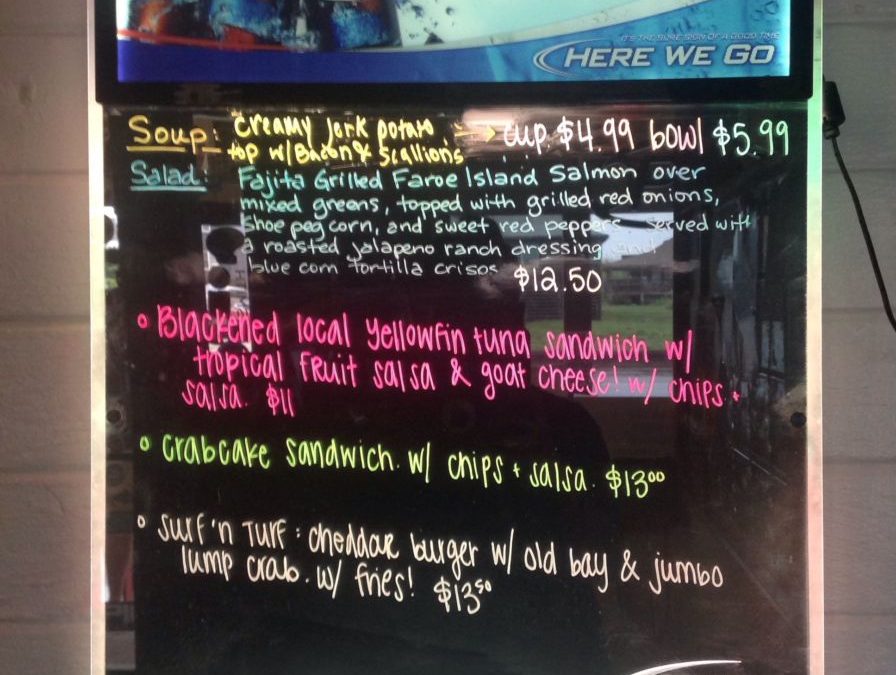 IT'S THE SURE SIGN OF A GOOD TIME
HERE WE GO
Soup: creamy jerk potato → cup $4.99 bowl $5.99
top w/Bacon & Scallions
Salad: Fajita Grilled Faroe Island Salmon over
mixed greens, topped with grilled red onions,
shoe peg corn, and sweet red peppers. Served with
a roasted jalapeno ranch dressing and
blue corn tortilla crisps $12.50
• Blackened local yellowfin tuna sandwich w/
tropical fruit salsa & goat cheese! w/ chips +
salsa. $11
• crabcake sandwich. w/ chips + salsa. $13.00
• Surf 'n Turf: cheddar burger w/ old bay & jumbo
lump crab. w/ fries! $13.50